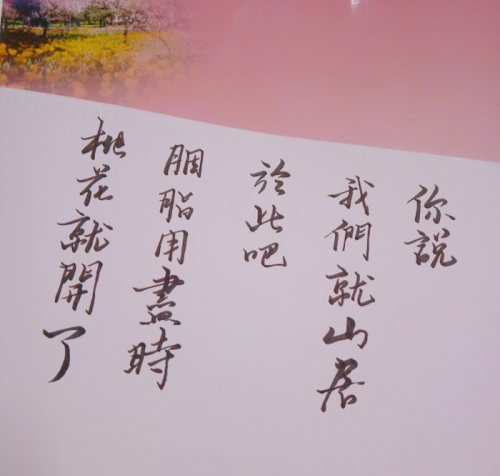 你說
我們就山居
於此吧
胭脂用盡時
桃花就開了